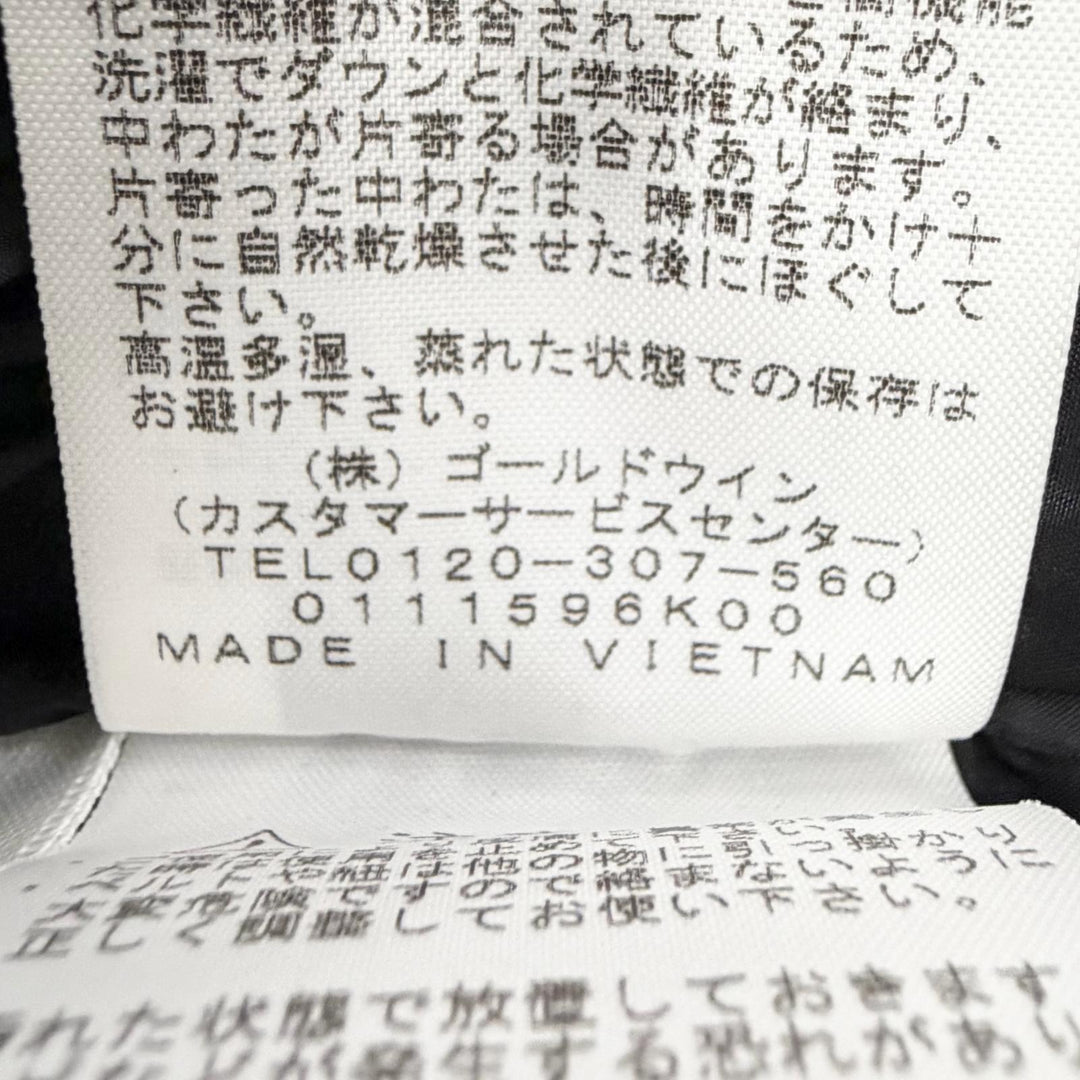 化学繊維が混合されているため、
洗濯でダウンと化学繊維が絡まり、
中わたが片寄る場合があります。
片寄った中わたは、時間をかけ十
分に自然乾燥させた後にほぐして
下さい。
高温多湿、蒸れた状態での保存は
お避け下さい。
(株)ゴールドウイン
(カスタマーサービスセンター)
TEL0120-307-560
0111596K00
MADE IN VIETNAM
正しく
してお使い下さい。
れた状態で放置しておきます
発生する恐れがあり